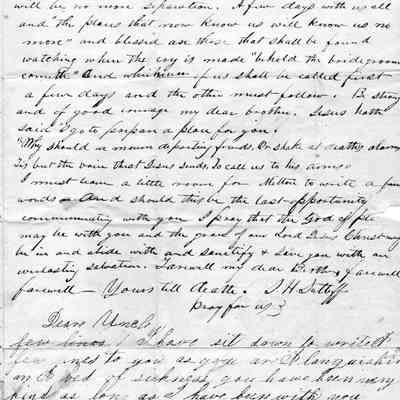 will be no more seperation. A few days with us all
and "the places that now know us will know us no
more" and blessed are those that shall be found
watching when the cry is made "behold the bridegroom
cometh" And whichever of us shall be called first
a few days and the other must follow. Be strong
and of good courage my dear brother. Jesus hath
said I go to prepare a place for you.
"Why should we mourn departing friends Or shake at deaths alarms
Tis but the voice that Jesus sends, To call us to his armes
I must leave a little room for Milton to write a few
words – And should this be the last opportunity
communicating with you I pray that the God of
may be with you and the grace of our Lord Jesus Christ may
be in and abide with and sanctify & give you with an
everlasting salvation. Farewell my dear Brother, Farewell
farewell – Yours till death. J H Sutliff
Pray for us
Dear Uncle
few lines I have sit down to write A
few lines to you as you are A languishing
on A bed of sickness you have been very
kind as long as I have been with you